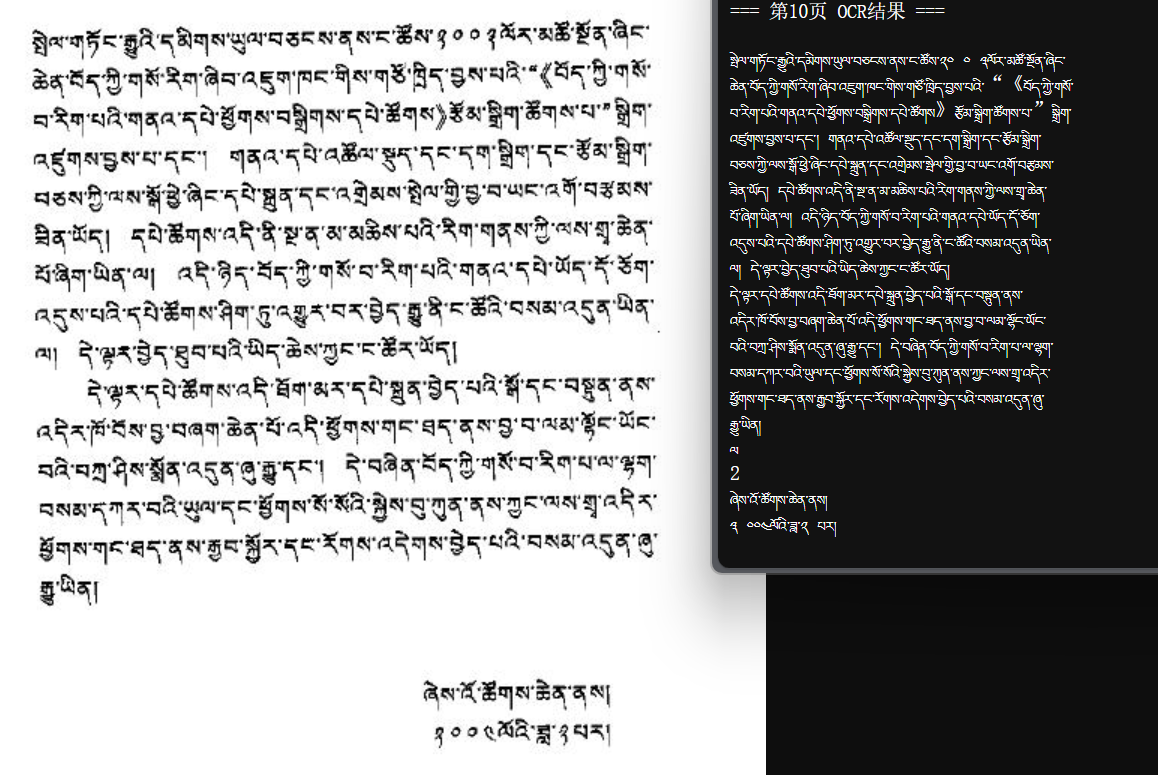 སྤེལ་གཏོང་རྒྱུའི་དམིགས་ཡུལ་བཅངས་ནས་ང་ཚོས་༢༠༠༡ལོར་མཚོ་སྔོན་ཞིང་
ཆེན་བོད་ཀྱི་གསོ་རིག་ཞིབ་འཇུག་ཁང་གིས་གཙོ་ཁྲིད་བྱས་པའི་“《བོད་ཀྱི་གསོ་
བ་རིག་པའི་གནའ་དཔེ་ཕྱོགས་བསྒྲིགས་དཔེ་ཚོགས》རྩོམ་སྒྲིག་ཚོགས་པ་”སྒྲིག་
འཛུགས་བྱས་པ་དང་། གནའ་དཔེ་འཚོལ་སྡུད་དང་དག་སྒྲིག་དང་རྩོམ་སྒྲིག་
བཅས་ཀྱི་ལས་སྒོ་ཕྱེ་ཞིང་དཔེ་སྐྲུན་དང་འགྲེམས་སྤེལ་གྱི་བྱ་བ་ཡང་འགོ་བརྩམས་
ཟིན་ཡོད། དཔེ་ཚོགས་འདི་ནི་སྔ་ན་མ་མཆིས་པའི་རིག་གནས་ཀྱི་ལས་གྲྭ་ཆེན་
པོ་ཞིག་ཡིན་ལ། འདི་ཉིད་བོད་ཀྱི་གསོ་བ་རིག་པའི་གནའ་དཔེ་ཡོད་དོ་ཅོག་
འདུས་པའི་དཔེ་ཚོགས་ཤིག་ཏུ་འགྱུར་བར་བྱེད་རྒྱུ་ནི་ང་ཚོའི་བསམ་འདུན་ཡིན་
ལ། དེ་ལྟར་བྱེད་ཐུབ་པའི་ཡིད་ཆེས་ཀྱང་ང་ཚོར་ཡོད།
དེ་ལྟར་དཔེ་ཚོགས་འདི་ཐོག་མར་དཔེ་སྐྲུན་བྱེད་པའི་སྒོ་དང་བསྟུན་ནས་
འདིར་ཁོ་བོས་བྱ་བཞག་ཆེན་པོ་འདི་ཕྱོགས་གང་ཐད་ནས་བྱ་བ་ལམ་ལྷོང་ཡོང་
བའི་བཀྲ་ཤིས་སྨོན་འདུན་ཞུ་རྒྱུ་དང་། དེ་བཞིན་བོད་ཀྱི་གསོ་བ་རིག་པ་ལ་ལྷག་
བསམ་དཀར་བའི་ཡུལ་དང་ཕྱོགས་སོ་སོའི་སྐྱེས་བུ་ཀུན་ནས་ཀྱང་ལས་གྲྭ་འདིར་
ཕྱོགས་གང་ཐད་ནས་རྒྱབ་སྐྱོར་དང་རོགས་འདེགས་བྱེད་པའི་བསམ་འདུན་ཞུ་
རྒྱུ་ཡིན།
ཞེས་འོ་ཚོགས་ཆེན་ནས།
༢༠༠༤ལོའི་ཟླ་༢པར།
=== 第10页 OCR结果 ===
སྤེལ་གཏོང་རྒྱུའི་དམིགས་ཡུལ་བཅངས་ནས་ང་ཚོས་༢༠ ༠ ༡ལོར་མཚོ་སྔོན་ཞིང་
ཆེན་བོད་ཀྱི་གསོ་རིག་ཞིབ་འཇུག་ཁང་གིས་གཙོ་ཁྲིད་བྱས་པའི་ “ 《བོད་ཀྱི་གསོ་
བ་རིག་པའི་གནའ་དཔེ་ཕྱོགས་བསྒྲིགས་དཔེ་ཚོགས》 རྩོམ་སྒྲིག་ཚོགས་པ་ ” སྒྲིག་
འཛུགས་བྱས་པ་དང་། གནའ་དཔེ་འཚོལ་སྡུད་དང་དག་སྒྲིག་དང་རྩོམ་སྒྲིག་
བཅས་ཀྱི་ལས་སྒོ་ཕྱེ་ཞིང་དཔེ་སྐྲུན་དང་འགྲེམས་སྤེལ་གྱི་བྱ་བ་ཡང་འགོ་བརྩམས་
ཟིན་ཡོད། དཔེ་ཚོགས་འདི་ནི་སྔ་ན་མ་མཆིས་པའི་རིག་གནས་ཀྱི་ལས་གྲྭ་ཆེན་
པོ་ཞིག་ཡིན་ལ། འདི་ཉིད་བོད་ཀྱི་གསོ་བ་རིག་པའི་གནའ་དཔེ་ཡོད་དོ་ཅོག་
འདུས་པའི་དཔེ་ཚོགས་ཤིག་ཏུ་འགྱུར་བར་བྱེད་རྒྱུ་ནི་ང་ཚོའི་བསམ་འདུན་ཡིན་
ལ། དེ་ལྟར་བྱེད་ཐུབ་པའི་ཡིད་ཆེས་ཀྱང་ང་ཚོར་ཡོད།
དེ་ལྟར་དཔེ་ཚོགས་འདི་ཐོག་མར་དཔེ་སྐྲུན་བྱེད་པའི་སྒོ་དང་བསྟུན་ནས་
འདིར་ཁོ་བོས་བྱ་བཞག་ཆེན་པོ་འདི་ཕྱོགས་གང་ཐད་ནས་བྱ་བ་ལམ་ལྷོང་ཡོང་
བའི་བཀྲ་ཤིས་སྨོན་འདུན་ཞུ་རྒྱུ་དང་། དེ་བཞིན་བོད་ཀྱི་གསོ་བ་རིག་པ་ལ་ལྷག་
བསམ་དཀར་བའི་ཡུལ་དང་ཕྱོགས་སོ་སོའི་སྐྱེས་བུ་ཀུན་ནས་ཀྱང་ལས་གྲྭ་འདིར་
ཕྱོགས་གང་ཐད་ནས་རྒྱབ་སྐྱོར་དང་རོགས་འདེགས་བྱེད་པའི་བསམ་འདུན་ཞུ་
རྒྱུ་ཡིན།
ལ
2
ཞེས་འོ་ཚོགས་ཆེན་ནས།
༢ ༠༠༤ལོའི་ཟླ་༢ པར།